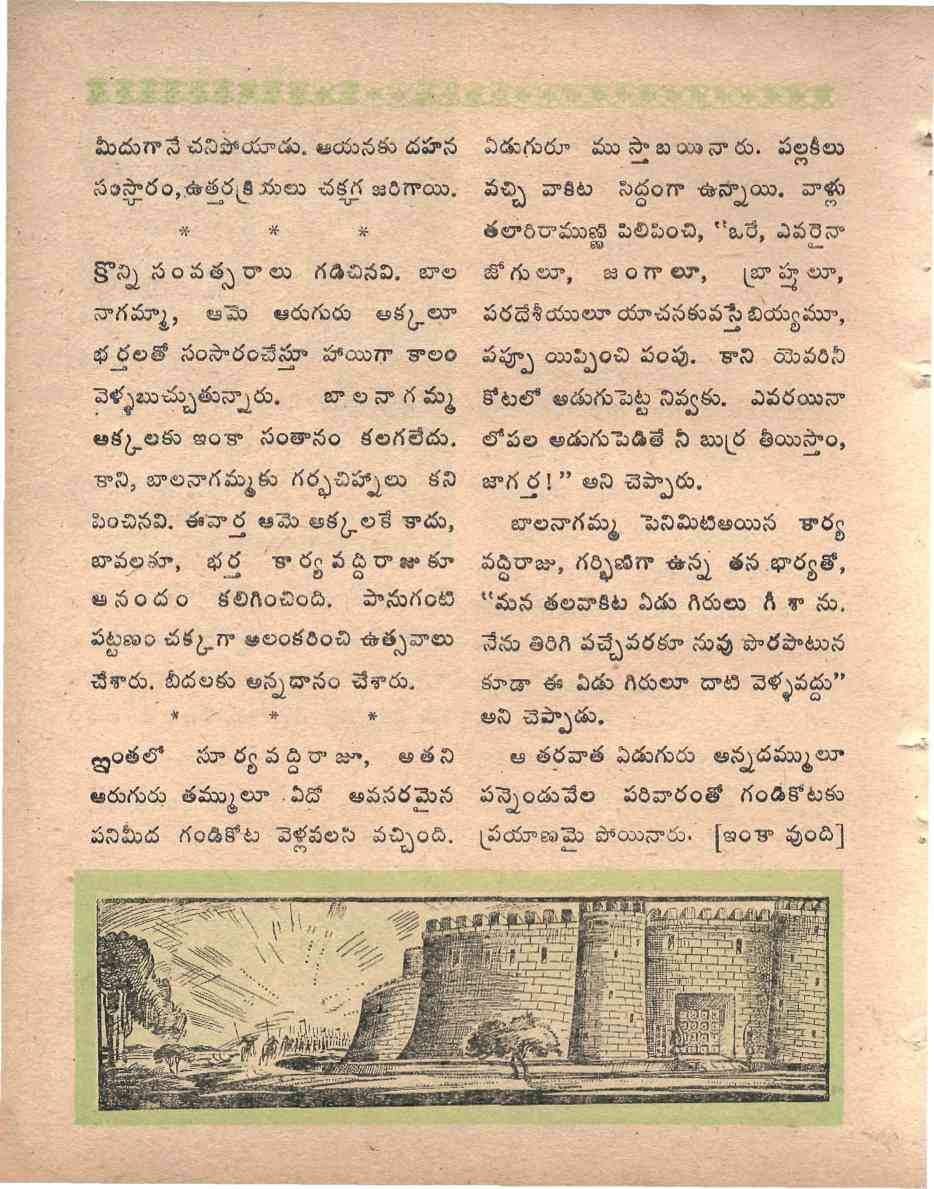 మీదుగానే చనిపోయాడు. ఆయనకు దహన
సంస్కారం, ఉత్తరక్రియలు చక్కగ జరిగాయి.
* * *
క్రొన్ని సంవత్సరాలు గడిచినవి. బాల
నాగమ్మా, ఆమె ఆరుగురు అక్కలూ
భర్తలతో సంసారంచేస్తూ హాయిగా కాలం
వెళ్ళబుచ్చుతున్నారు. బాలనాగమ్మ
అక్కలకు ఇంకా సంతానం కలగలేదు.
కాని, బాలనాగమ్మకు గర్భచిహ్నాలు కని
పించినవి. ఈవార్త ఆమె అక్కలకే కాదు,
బావలకూ, భర్త కార్యవద్దిరాజుకూ
ఆనందం కలిగించింది. పానుగంటి
పట్టణం చక్కగా అలంకరించి ఉత్సవాలు
చేశారు. బీదలకు అన్నదానం చేశారు.
* * *
ఇంతలో సూర్యవద్దిరాజూ, అతని
ఆరుగురు తమ్ములూ ఏదో అవసరమైన
పనిమీద గండికోట వెళ్లవలసి వచ్చింది.
ఏడుగురూ ముస్తాబయినారు. పల్లకీలు
వచ్చి వాకిట సిద్దంగా ఉన్నాయి. వాళ్లు
తలారిరాముణ్ణి పిలిపించి, "ఒరే, ఎవరైనా
జోగులూ, జంగాలూ, బ్రాహ్మలూ,
పరదేశీయులూ యాచనకువస్తే బియ్యమూ,
పప్పూ యిప్పించి పంపు. కాని యెవరినీ
కోటలో అడుగుపెట్ట నివ్వకు. ఎవరయినా
లోపల అడుగుపెడితే నీ బుర్ర తీయిస్తాం,
జాగర్త!" అని చెప్పారు.
బాలనాగమ్మ పెనిమిటిఅయిన కార్య
వద్దిరాజు, గర్భిణిగా ఉన్న తన భార్యతో,
"మన తలవాకిట ఏడు గిరులు గీశాను.
నేను తిరిగి వచ్చేవరకూ నువు పొరపాటున
కూడా ఈ ఏడు గిరులూ దాటి వెళ్ళవద్దు"
అని చెప్పాడు.
ఆ తరవాత ఏడుగురు అన్నదమ్ములూ
పన్నెండువేల పరివారంతో గండికోటకు
ప్రయాణమై పోయినారు. [ఇంకా వుంది]